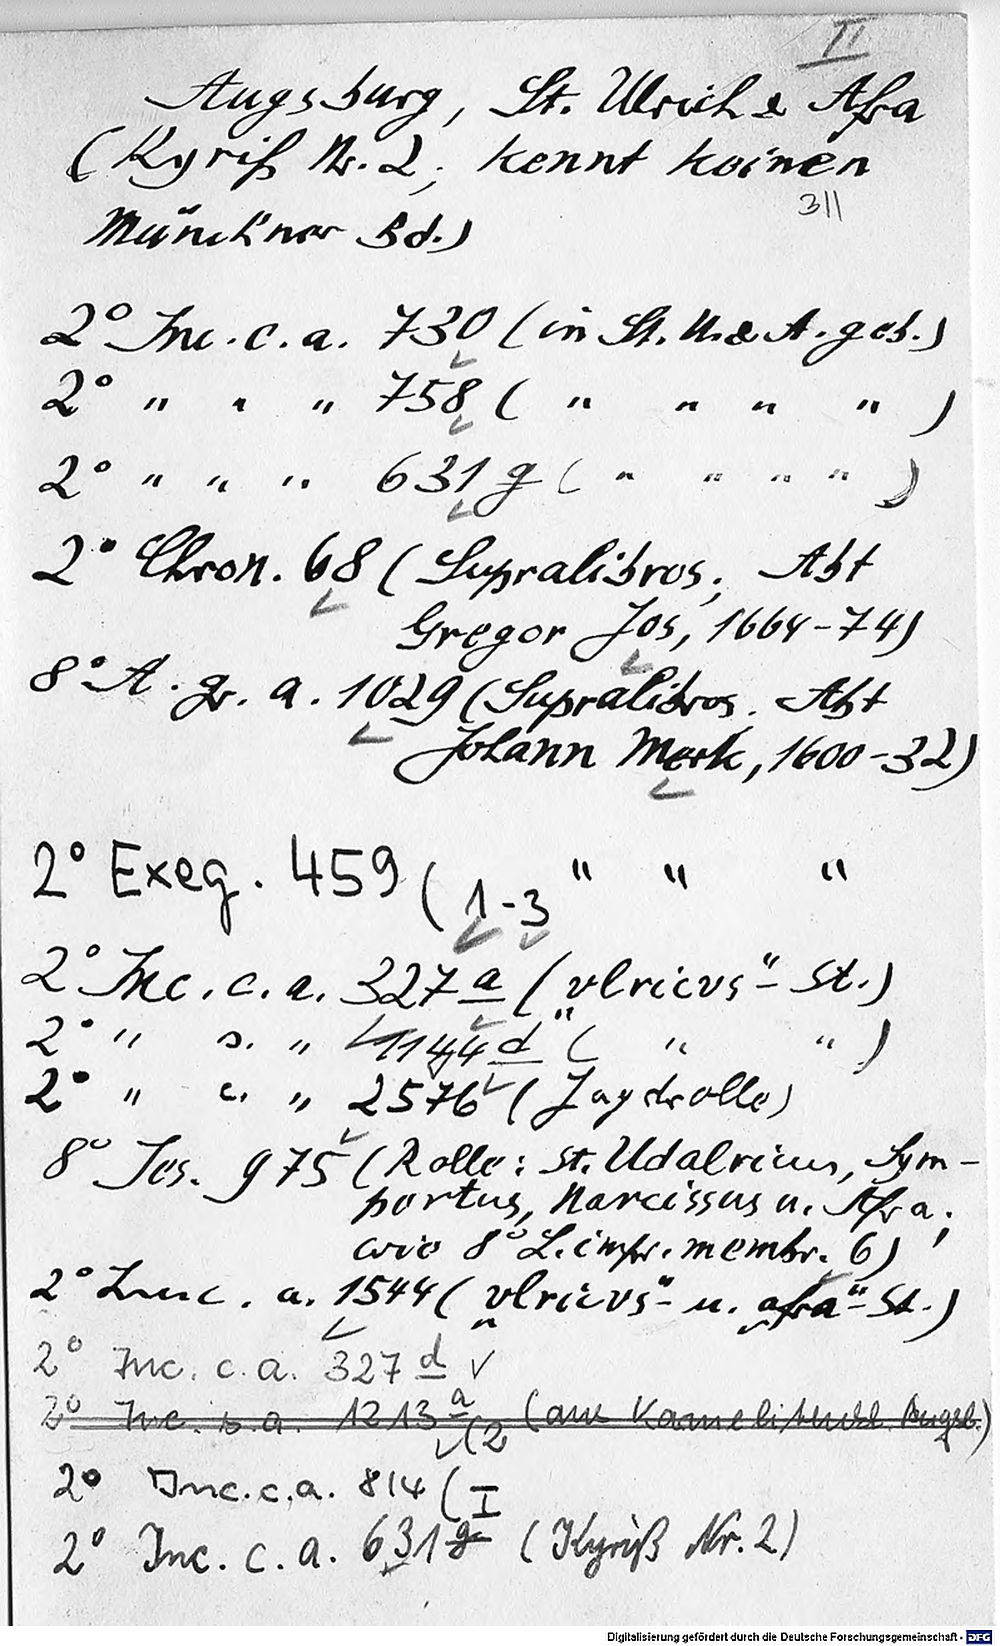 II
Augsburg, St. Ulrich & Afra
(Kyriß Nr. 2, kennt keinen
311
Münchner Bd.)
2° Inc. c. a. 730 (in St. U. & A. geb.)
2° " " " 758 ( " " " " )
2° " " " 631 g ( " " " " )
2° Chron. 68 (Supralibros, Abt
Gregor Jos, 1664-74)
8° A. gr. a. 1029 (Supralibros, Abt
Johann Merk, 1600-32)
2° Exeg. 459 (1-3 " " "
2° Inc. c. a. 327 a ("vlricvs"-St.)
2° " s. " 1144 d ( " " )
2° " c. " 2576 (Jagdrolle)
8° Jes. 975 (Rolle: St. Udalricus, Sym-
portus, Narcissus u. Afra;
wie 8° L. impr. membr. 6)
2° L. a. 1544 ("vlricvs"- u. "afra"-St.)
2° Inc. c. a. 327 d
2° Inc. s. a. 1213 a (2 (aus Augsb.)
2° Inc. c. a. 814 (I
2° Inc. c. a. 631 g (Kyriß Nr. 2)
Digitalisierung gefördert durch die Deutsche Forschungsgemeinschaft - DFG